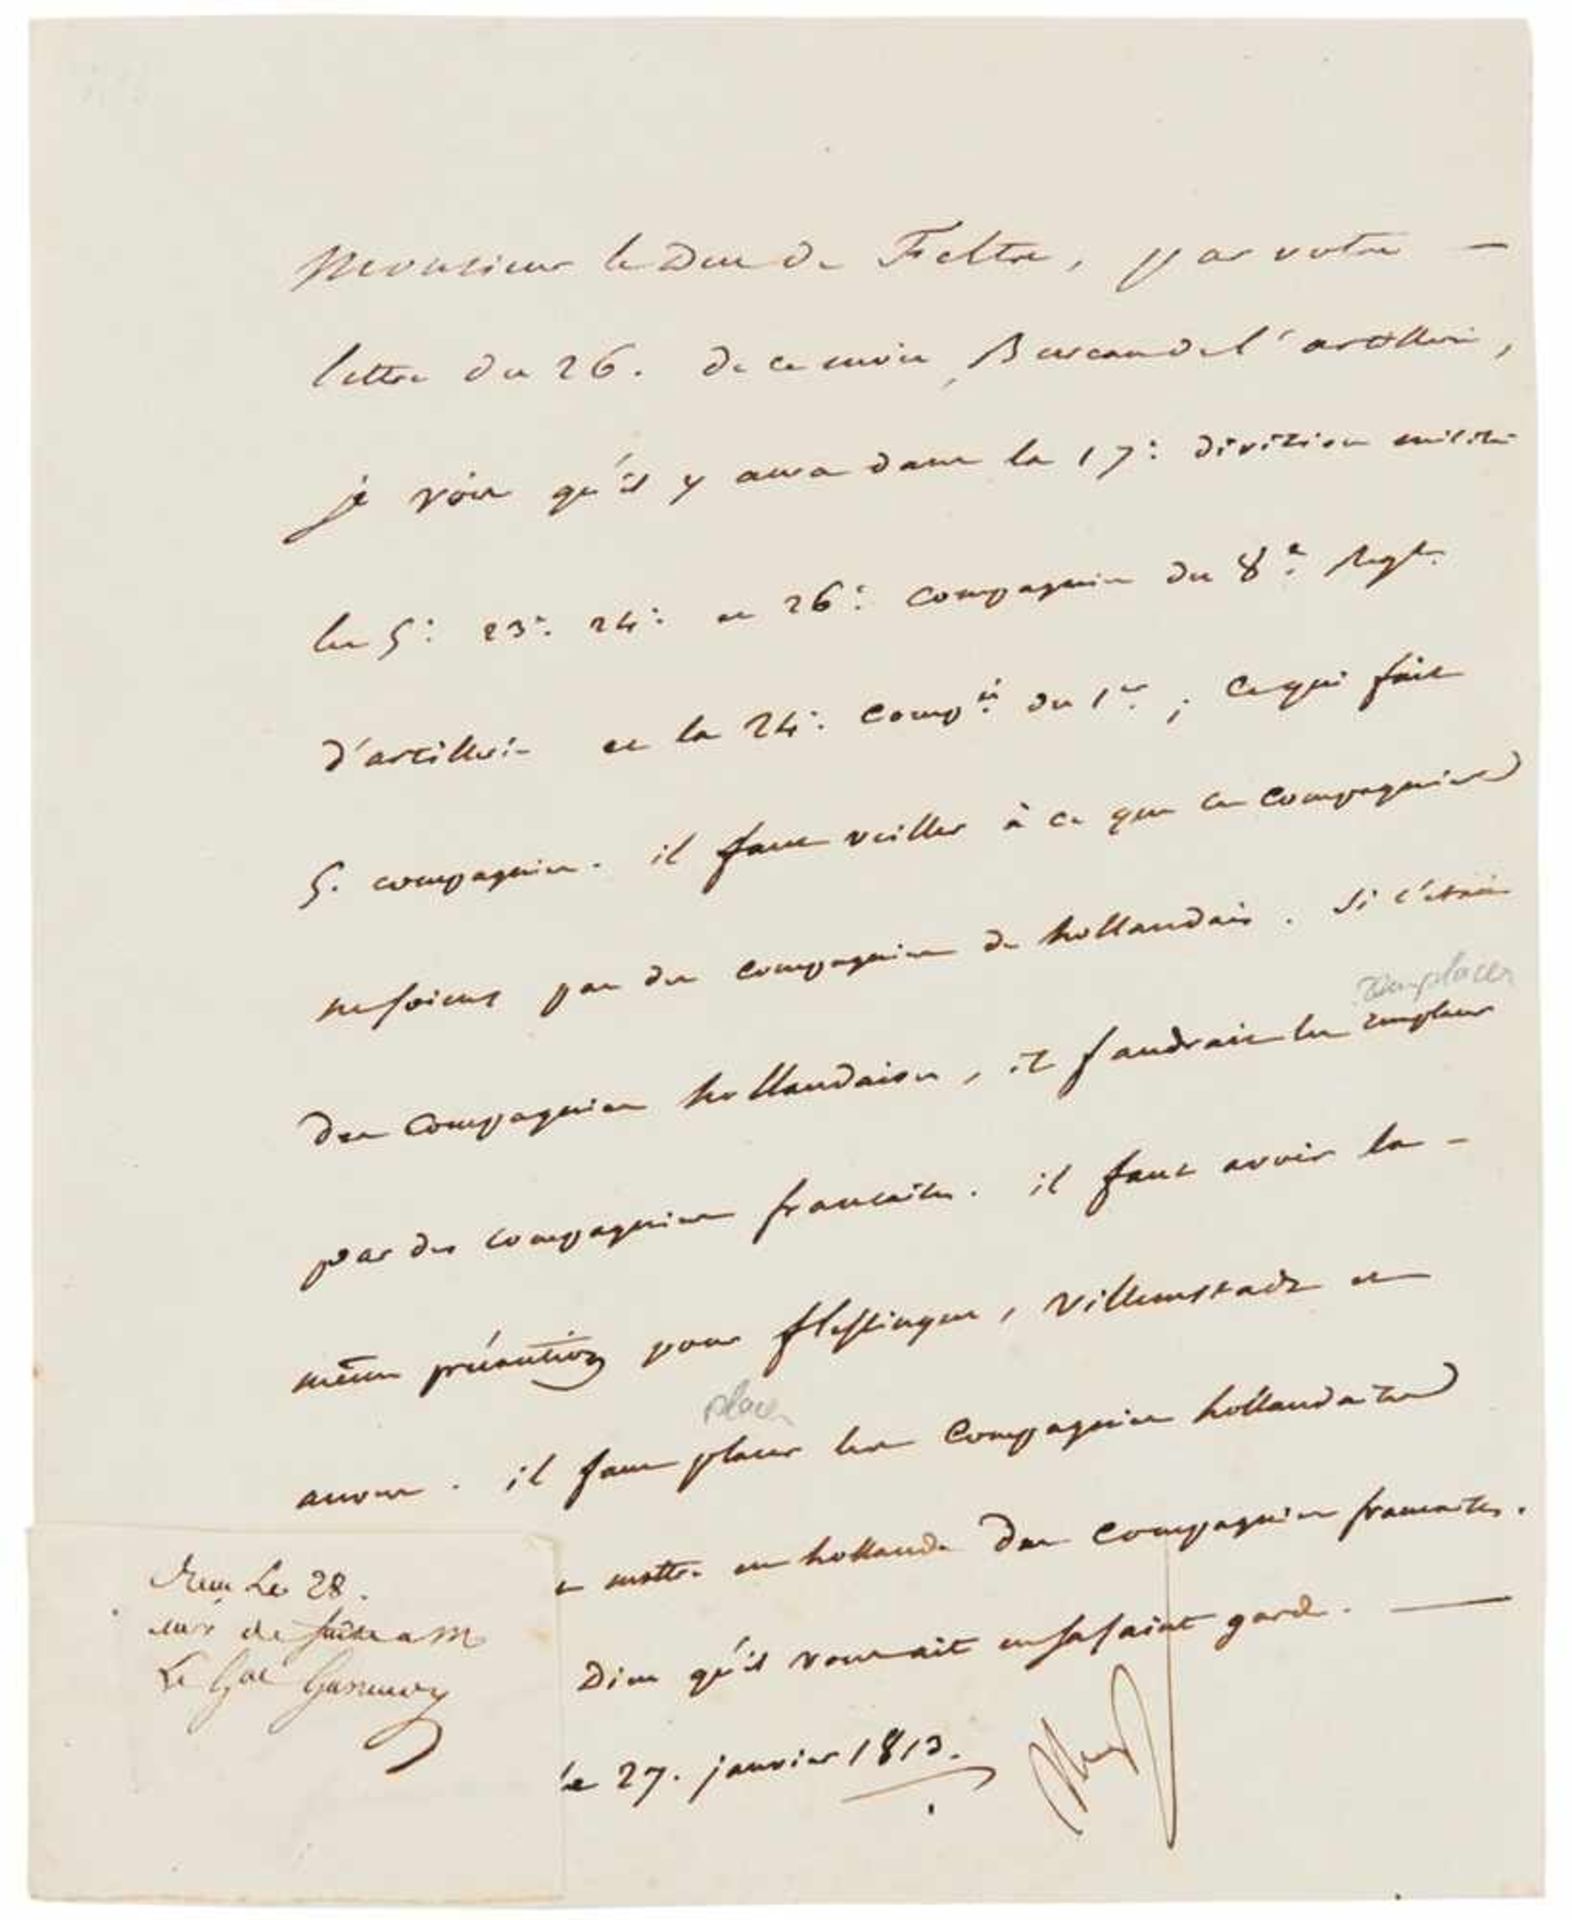 Monsieur le Duc de Feltre, par votre —
lettre du 26. de ce mois, Bureau de l'artillerie,
je vois qu'il y aura dans la 17e. division milit.re
les 5e. 23e. 24e. et 26e. compagnies du 8e. Regt.
d'artillerie et la 24e. compie. du 1er. ; ce qui fait
5. compagnies. il faut veiller à ce que ces compagnies
ne soient pas des compagnies de hollandais. Si c'était
remplacer
des compagnies hollandaises, il faudrait les remplacer
par des compagnies françaises. il faut avoir la -
même précaution pour flessingue, Villemstadt et
placer
anvers. il faut placer les compagnies hollandaises
mettre en hollande des compagnies françaises.
Dieu qu'il vous ait en sa sainte garde. —
le 27. janvier 1813.
Nap
Reçu Le 28.
de suite a M
Le Gal Gassendy